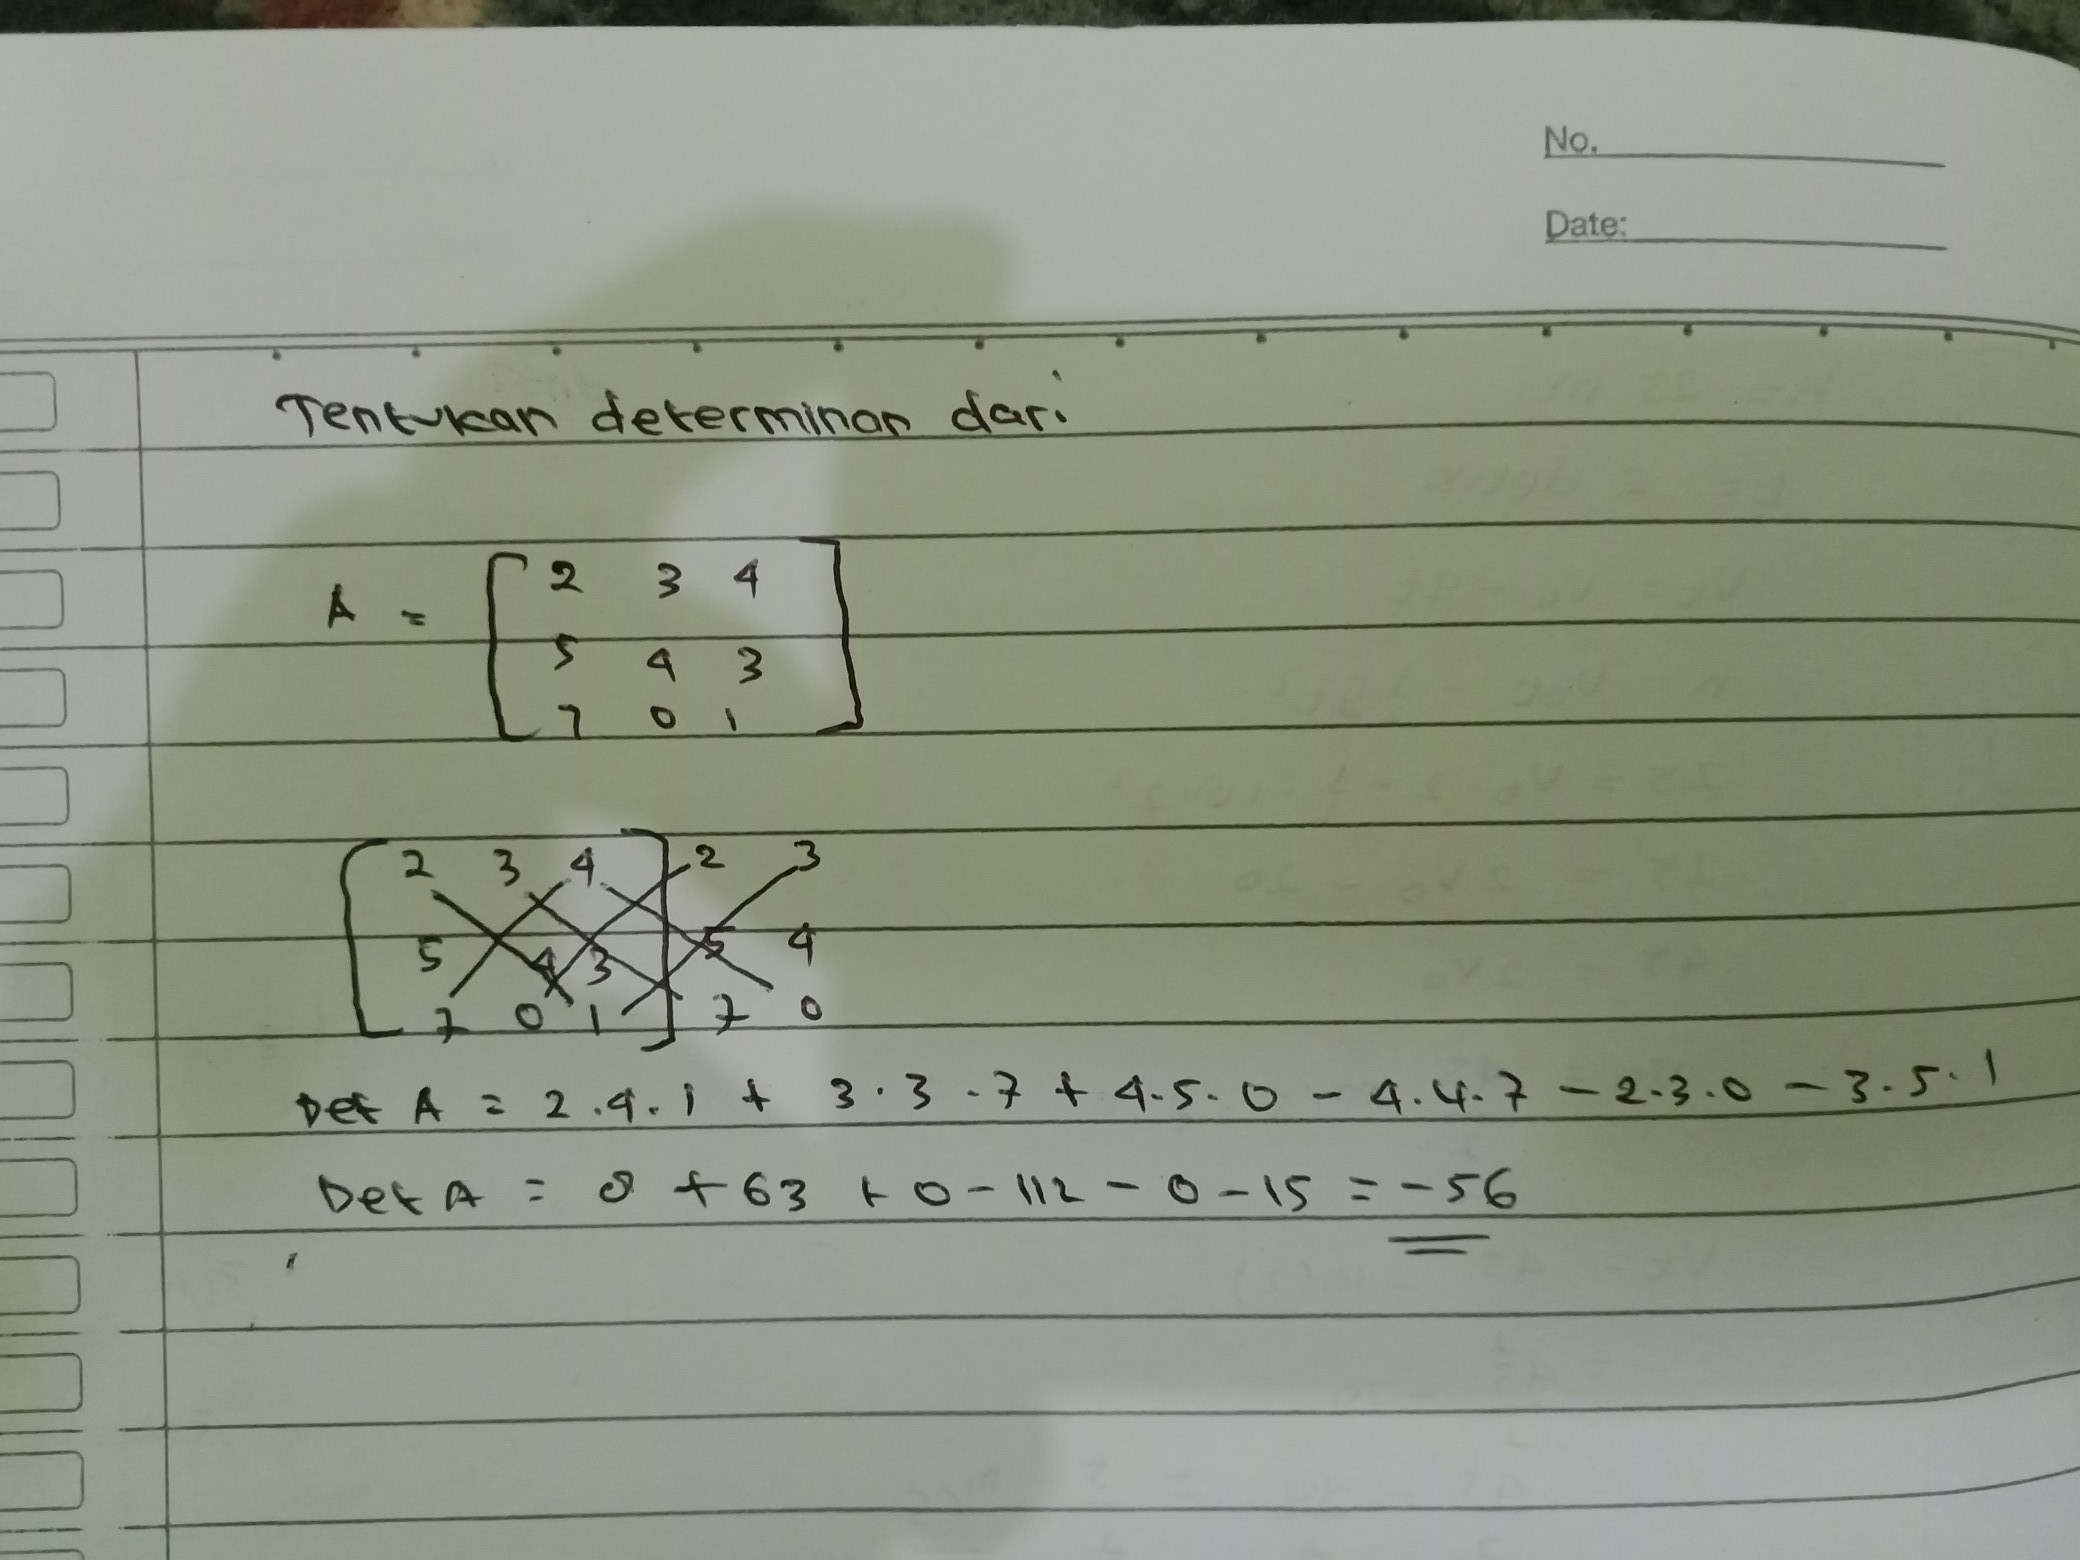 No.
Date:
Tentukan determinan dari
A = [ 2 3 4
5 4 3
7 0 1 ]
[ 2 3 4 ] 2 3
5 4 3 5 4
7 0 1 7 0
Det A = 2.4.1 + 3.3.7 + 4.5.0 - 4.4.7 - 2.3.0 - 3.5.1
Det A = 8 + 63 + 0 - 112 - 0 - 15 = -56